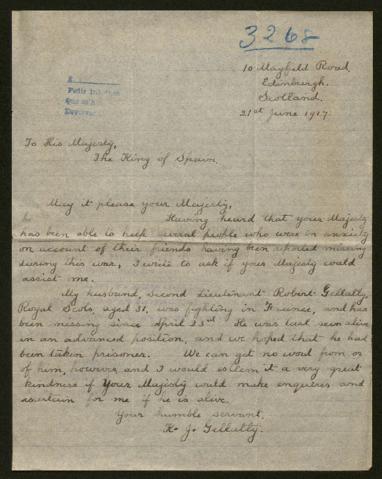 3268
10 Mayfield Road
Edinburgh.
Scotland.
21st June 1917.
To His Majesty,
The King of Spain.
May it please your Majesty,
Having heard that your Majesty
has been able to help several people who were in anxiety
on account of their friends having been reported missing
during this war, I write to ask if your Majesty could
assist me.
My husband, Second Lieutenant Robert Gellatly,
Royal Scots, aged 31, was fighting in France, and has
been missing since April 23rd. He was last seen alive
in an advanced position, and we hoped that he had
been taken prisoner. We can get no word from or
of him, however, and I would esteem it a very great
kindness if Your Majesty could make enquiries and
ascertain for me if he is alive.
Your humble servant,
K. J. Gellatly.